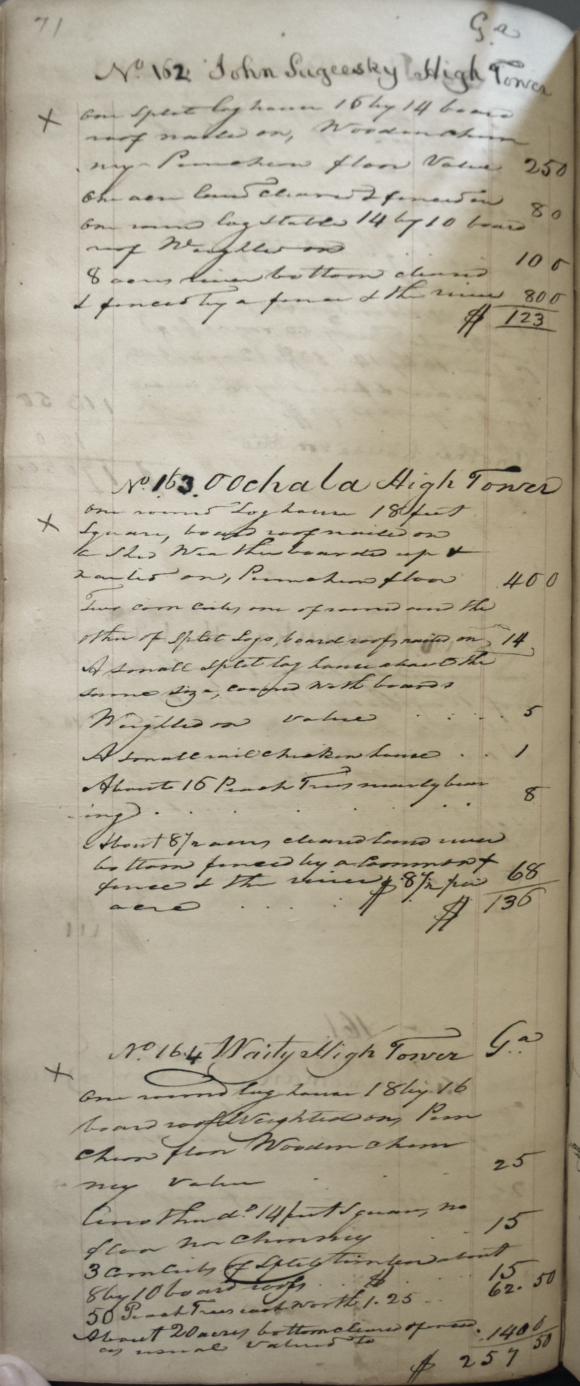 71
Ga
No 162 John Sugeesky High Tower
x one Split log house 16 by 14 board
roof nailed on, Wooden chim
ney Puncheon floor Value 250
One acre land cleared & fenced in 80
one round log stable 14 by 10 board
roof Weighted on 100
8 acres river bottom cleared
& fenced by a fence & the river 800
$ 123
No 163. Oochala High Tower
x one round Log house 18 feet
Square, board roof nailed on
Weather boarded up &
nailed on, Puncheon floor 400
Two corn cribs one of round and the
other of Split Logs, board roofs nailed on 14
A small Split log house about the
same size, covered with boards
Weighted on value 5
A small rail chicken house 1
About 16 Peach Trees nearly bear
ing 8
About 8 1/2 acres cleared land river
bottom fenced by a common
fence & the river $ 8 per 68
acre $ 136
No 164 Waity High Tower Ga
x One round log house 18 by 16
board roof Weighted on, Pun
cheon floor Wooden chim
ney value 25
Another do 14 feet Square, no
floor nor chimney 15
3 corn cribs of Split timber about
8 by 10 board roofs 15
50 Peach Trees each worth 1.25 62.50
About 20 acres bottom cleared & fenced
as usual valued to 1400
$ 257 50